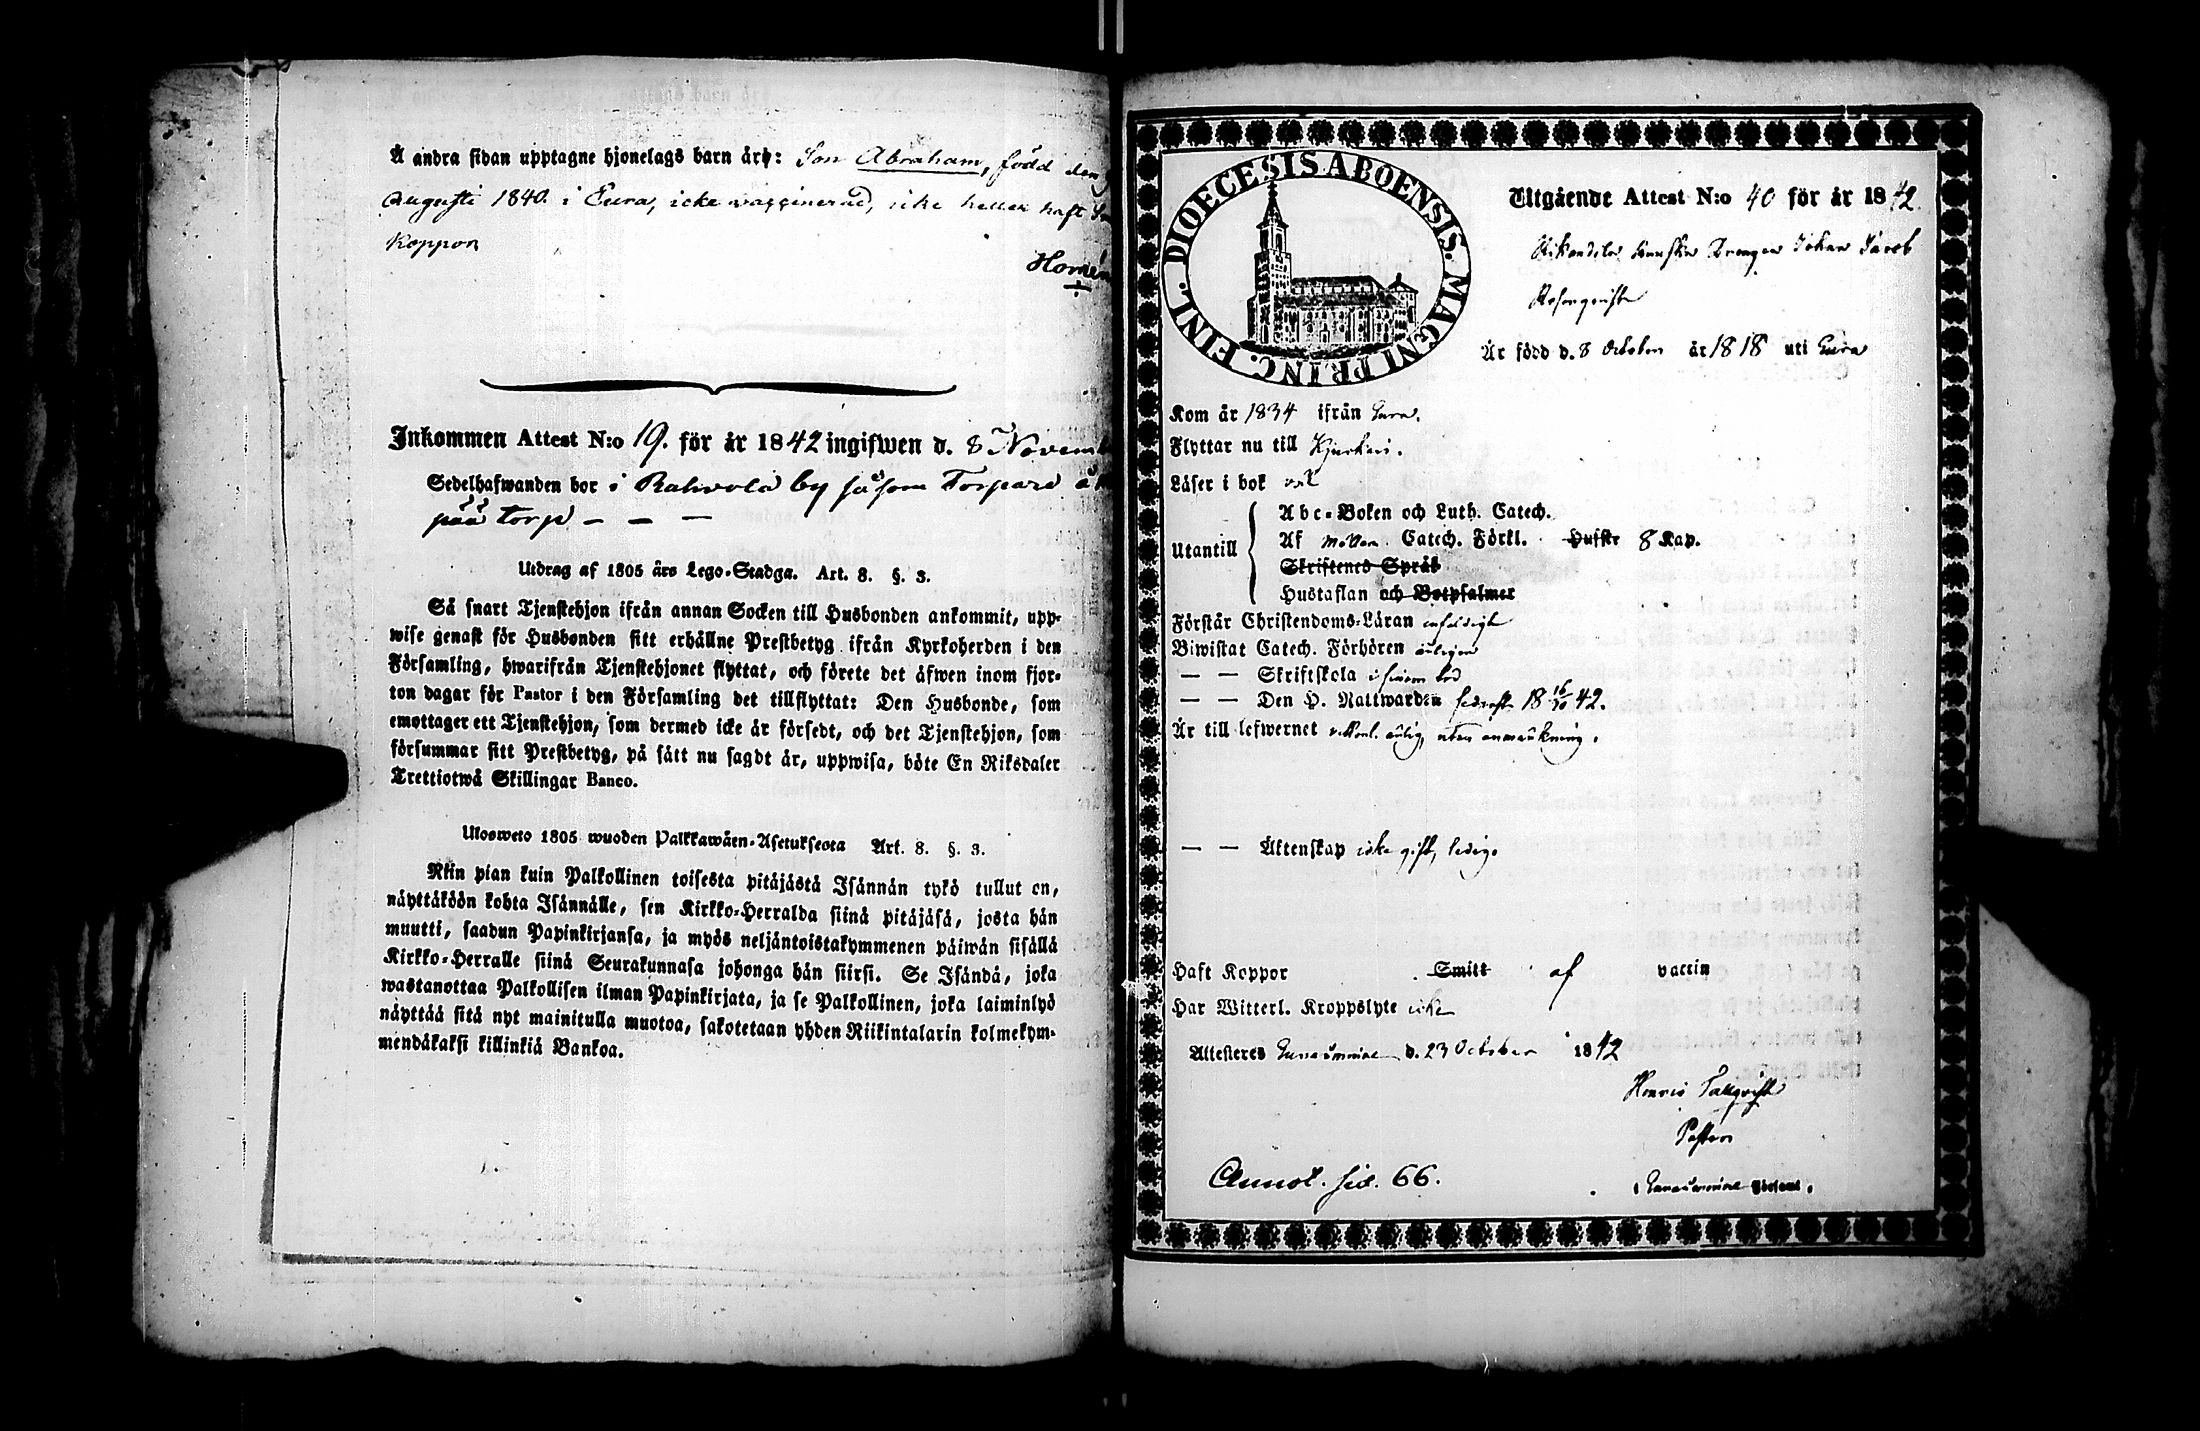 Å andra sidan upptagne hjonelags barn äro: Son Abraham, född den
Augusti 1840. i Eura, icke waccinerad, icke heller haft
Koppor
Inkommen Attest N:o 19. för år 1842 ingifwen d. 8 Novem
Sedelhafwanden bor i Rahvola by såsom Torpare
påå Torp — — —
Utdrag af 1805 års Lego-Stadga. Art. 8. §. 3.
Så snart Tjenstehjon ifrån annan Socken till Husbonden ankommit, upp-
wise genast för Husbonden sitt erhållne Prestbetyg ifrån Kyrkoherden i den
Församling, hwarifrån Tjenstehjonet flyttat, och förete det äfwen inom fjor-
ton dagar för Pastor i den Församling det tillflyttat: Den Husbonde, som
emottager ett Tjenstehjon, som dermed icke är försedt, och det Tjenstehjon, som
försummar sitt Prestbetyg, på sätt nu sagdt är, uppwisa, böte En Riksdaler
Trettiotwå Skillingar Banco.
Ulosweto 1805 wuoden Palkkawäen-Asetuksesta Art. 8. §. 3.
Niin pian kuin Palkollinen toisesta pitäjästä Isännän tykö tullut on,
näyttäköön kohta Isännälle, sen Kirkko-Herralda siinä pitäjäsä, josta hän
muutti, saadun Papinkirjansa, ja myös neljäntoistakymmenen päiwän sisällä
Kirkko-Herralle siinä Seurakunnasa johonga hän siirsi. Se Isändä, joka
wastanottaa Palkollisen ilman Papinkirjata, ja se Palkollinen, joka laiminlyö
näyttää sitä nyt mainitulla muotoa, sakotetaan yhden Riikintalarin kolmekym-
mendäkaksi killinkiä Bankoa.
DIOECESIS ABOENSIS. MAGNI PRINC. FINL.
Utgående Attest N:o 40 för år 1842.
Drengen Johan Jacob
Rosenqvist
Är född d. 8 October år 1818 uti Eura
Kom år 1834 ifrån Eura.
Flyttar nu till Kjukais.
Läser i bok wäl
Utantill
Abc-Boken och Luth. Catech.
Af Möllers Catech. Förkl. Hufstr 8 Kap.
Skriftenes Språk
Hustaflan och Botpsalmer
Förstår Christendoms-Läran enfaldigt
Biwistat Catech. Förhören årligen
— — Skriftskola i sinom tid
— — Den H. Nattwarden sednast 18 16/10 42.
Är till lefwernet ärlig, utan anmärkning.
— — Äktenskap icke gift, ledig.
Haft Koppor Smitt af vaccin
Har Witterl. Kroppslyte icke
Attesteres Euraåminne d. 23 October 1842
Henric Tallqvist
Pastor
i Euraåminne
Annot. sid. 66.